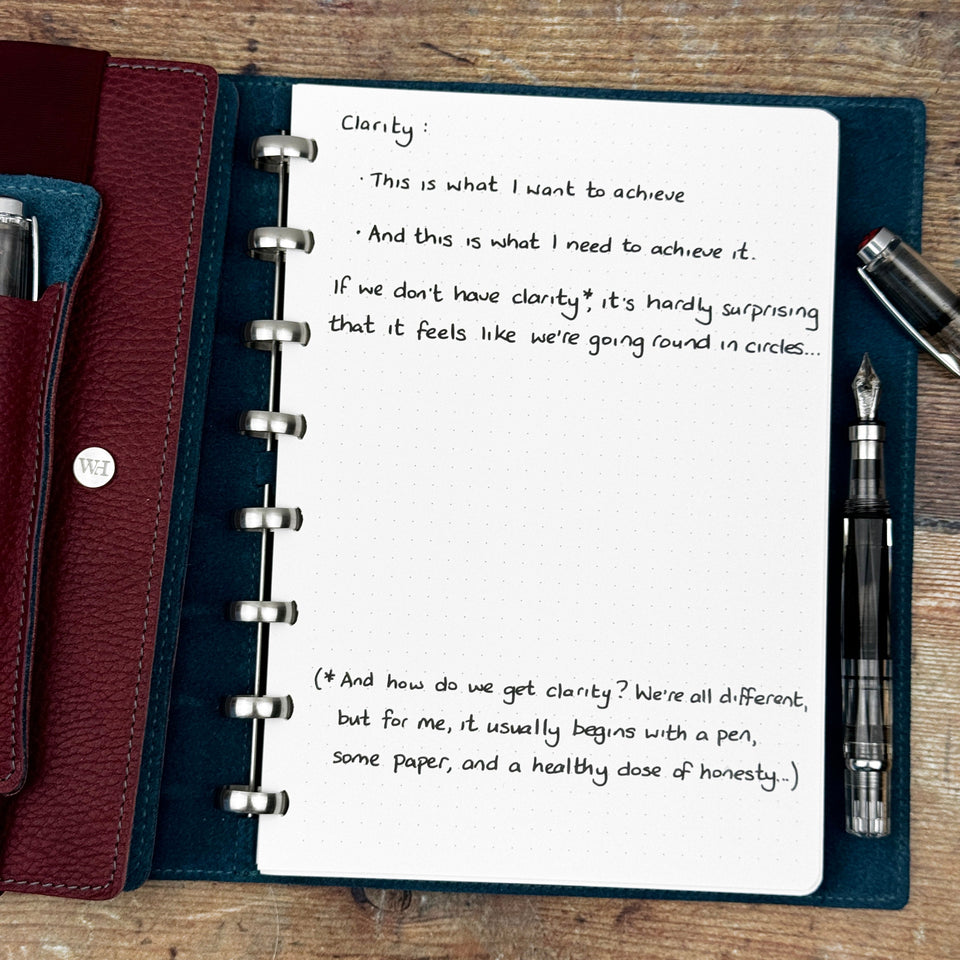 Clarity :
· This is what I want to achieve
· And this is what I need to achieve it.
If we don't have clarity*, it's hardly surprising
that it feels like we're going round in circles...
(* And how do we get clarity? We're all different,
but for me, it usually begins with a pen,
some paper, and a healthy dose of honesty...)
WH